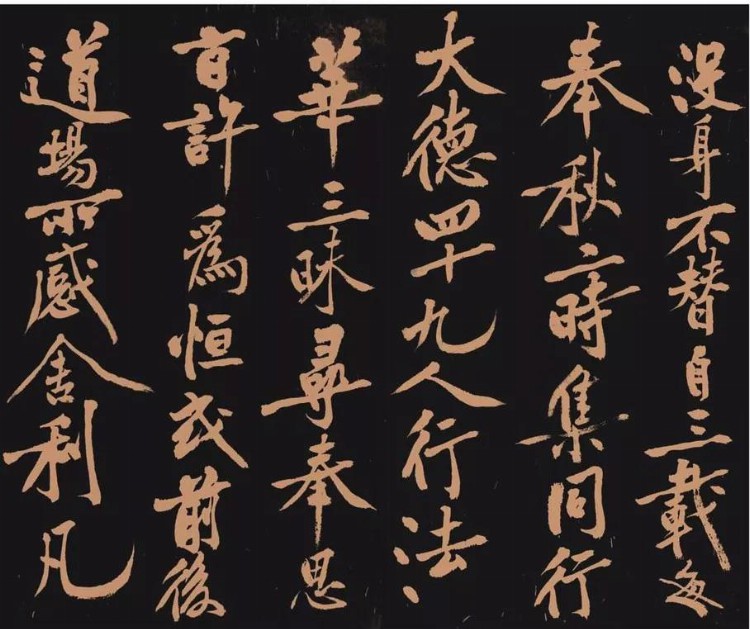 没身不替自三載每
春秋二時集同行
大德四十九人行法
華三昧尋奉恩
旨許爲恒式前後
道場所感舍利凡